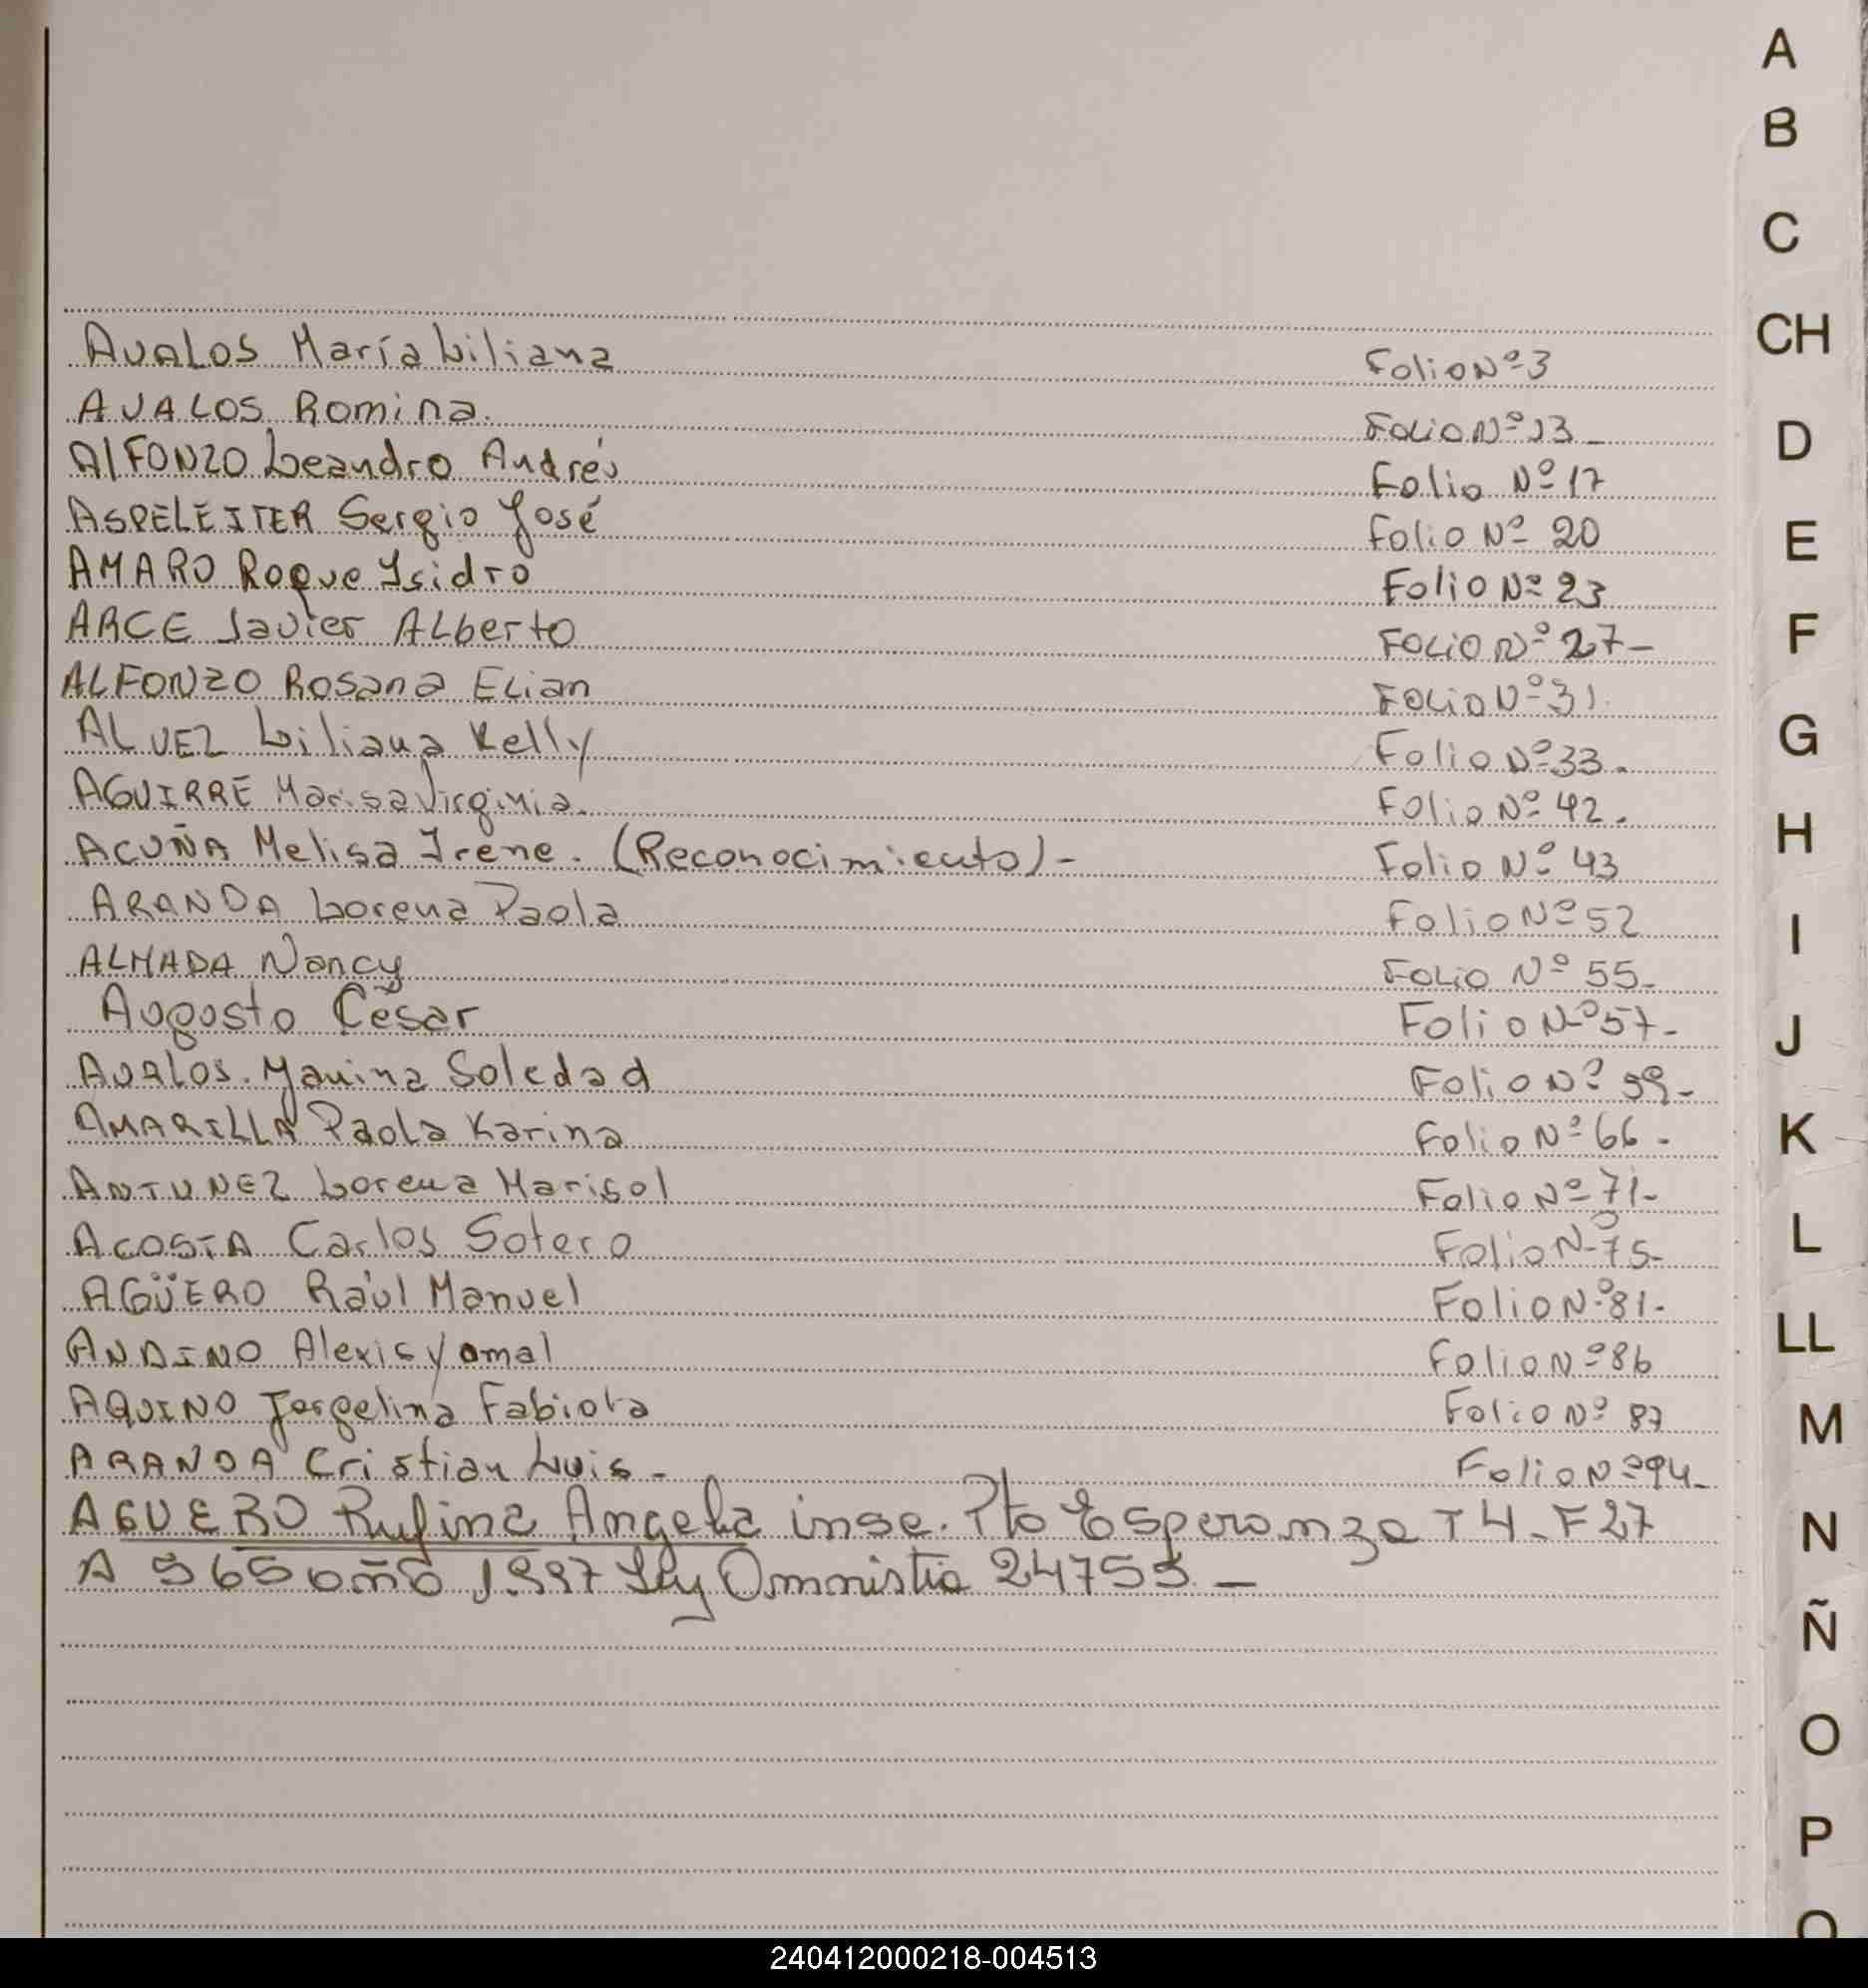 AVALOS María Liliana Folio Nº 3
AVALOS Romina. Folio Nº 13-
AlFONZO Leandro Andrés Folio Nº 17
ASPELEITER Sergio José Folio Nº 20
AMARO Roque Isidro Folio Nº 23
ARCE Javier ALberto Folio Nº 27-
ALFONZO Rosana Elian Folio Nº 31.
ALVEZ Liliana Kelly Folio Nº 33.
AGUIRRE Marisa Virginia. Folio Nº 42.
ACUÑA Melisa Irene. (Reconocimiento)- Folio Nº 43
ARANDA Lorena Paola Folio Nº 52
ALMADA Nancy Folio Nº 55-
Augosto César Folio Nº 57-
AVALOS. Yanina Soledad Folio Nº 59-
AMARILLA Paola Karina Folio Nº 66.
ANTUNEZ Lorena Marisol Folio Nº 71-
ACOSTA Carlos Sotero Folio Nº 75-
AGÜERO Raúl Manuel Folio Nº 81-
ANDINO Alexis Yamal Folio Nº 86
AQUINO Jorgelina Fabiola Folio Nº 87
ARANDA Cristian Luis- Folio Nº 94-
AGUERO Rufina Angela insc. Pto Esperanza T 4-F 27
A 965 año 1.997 Ley Omnistia 24755.-
A
B
C
CH
D
E
F
G
H
I
J
K
L
LL
M
N
Ñ
O
P
240412000218-004513